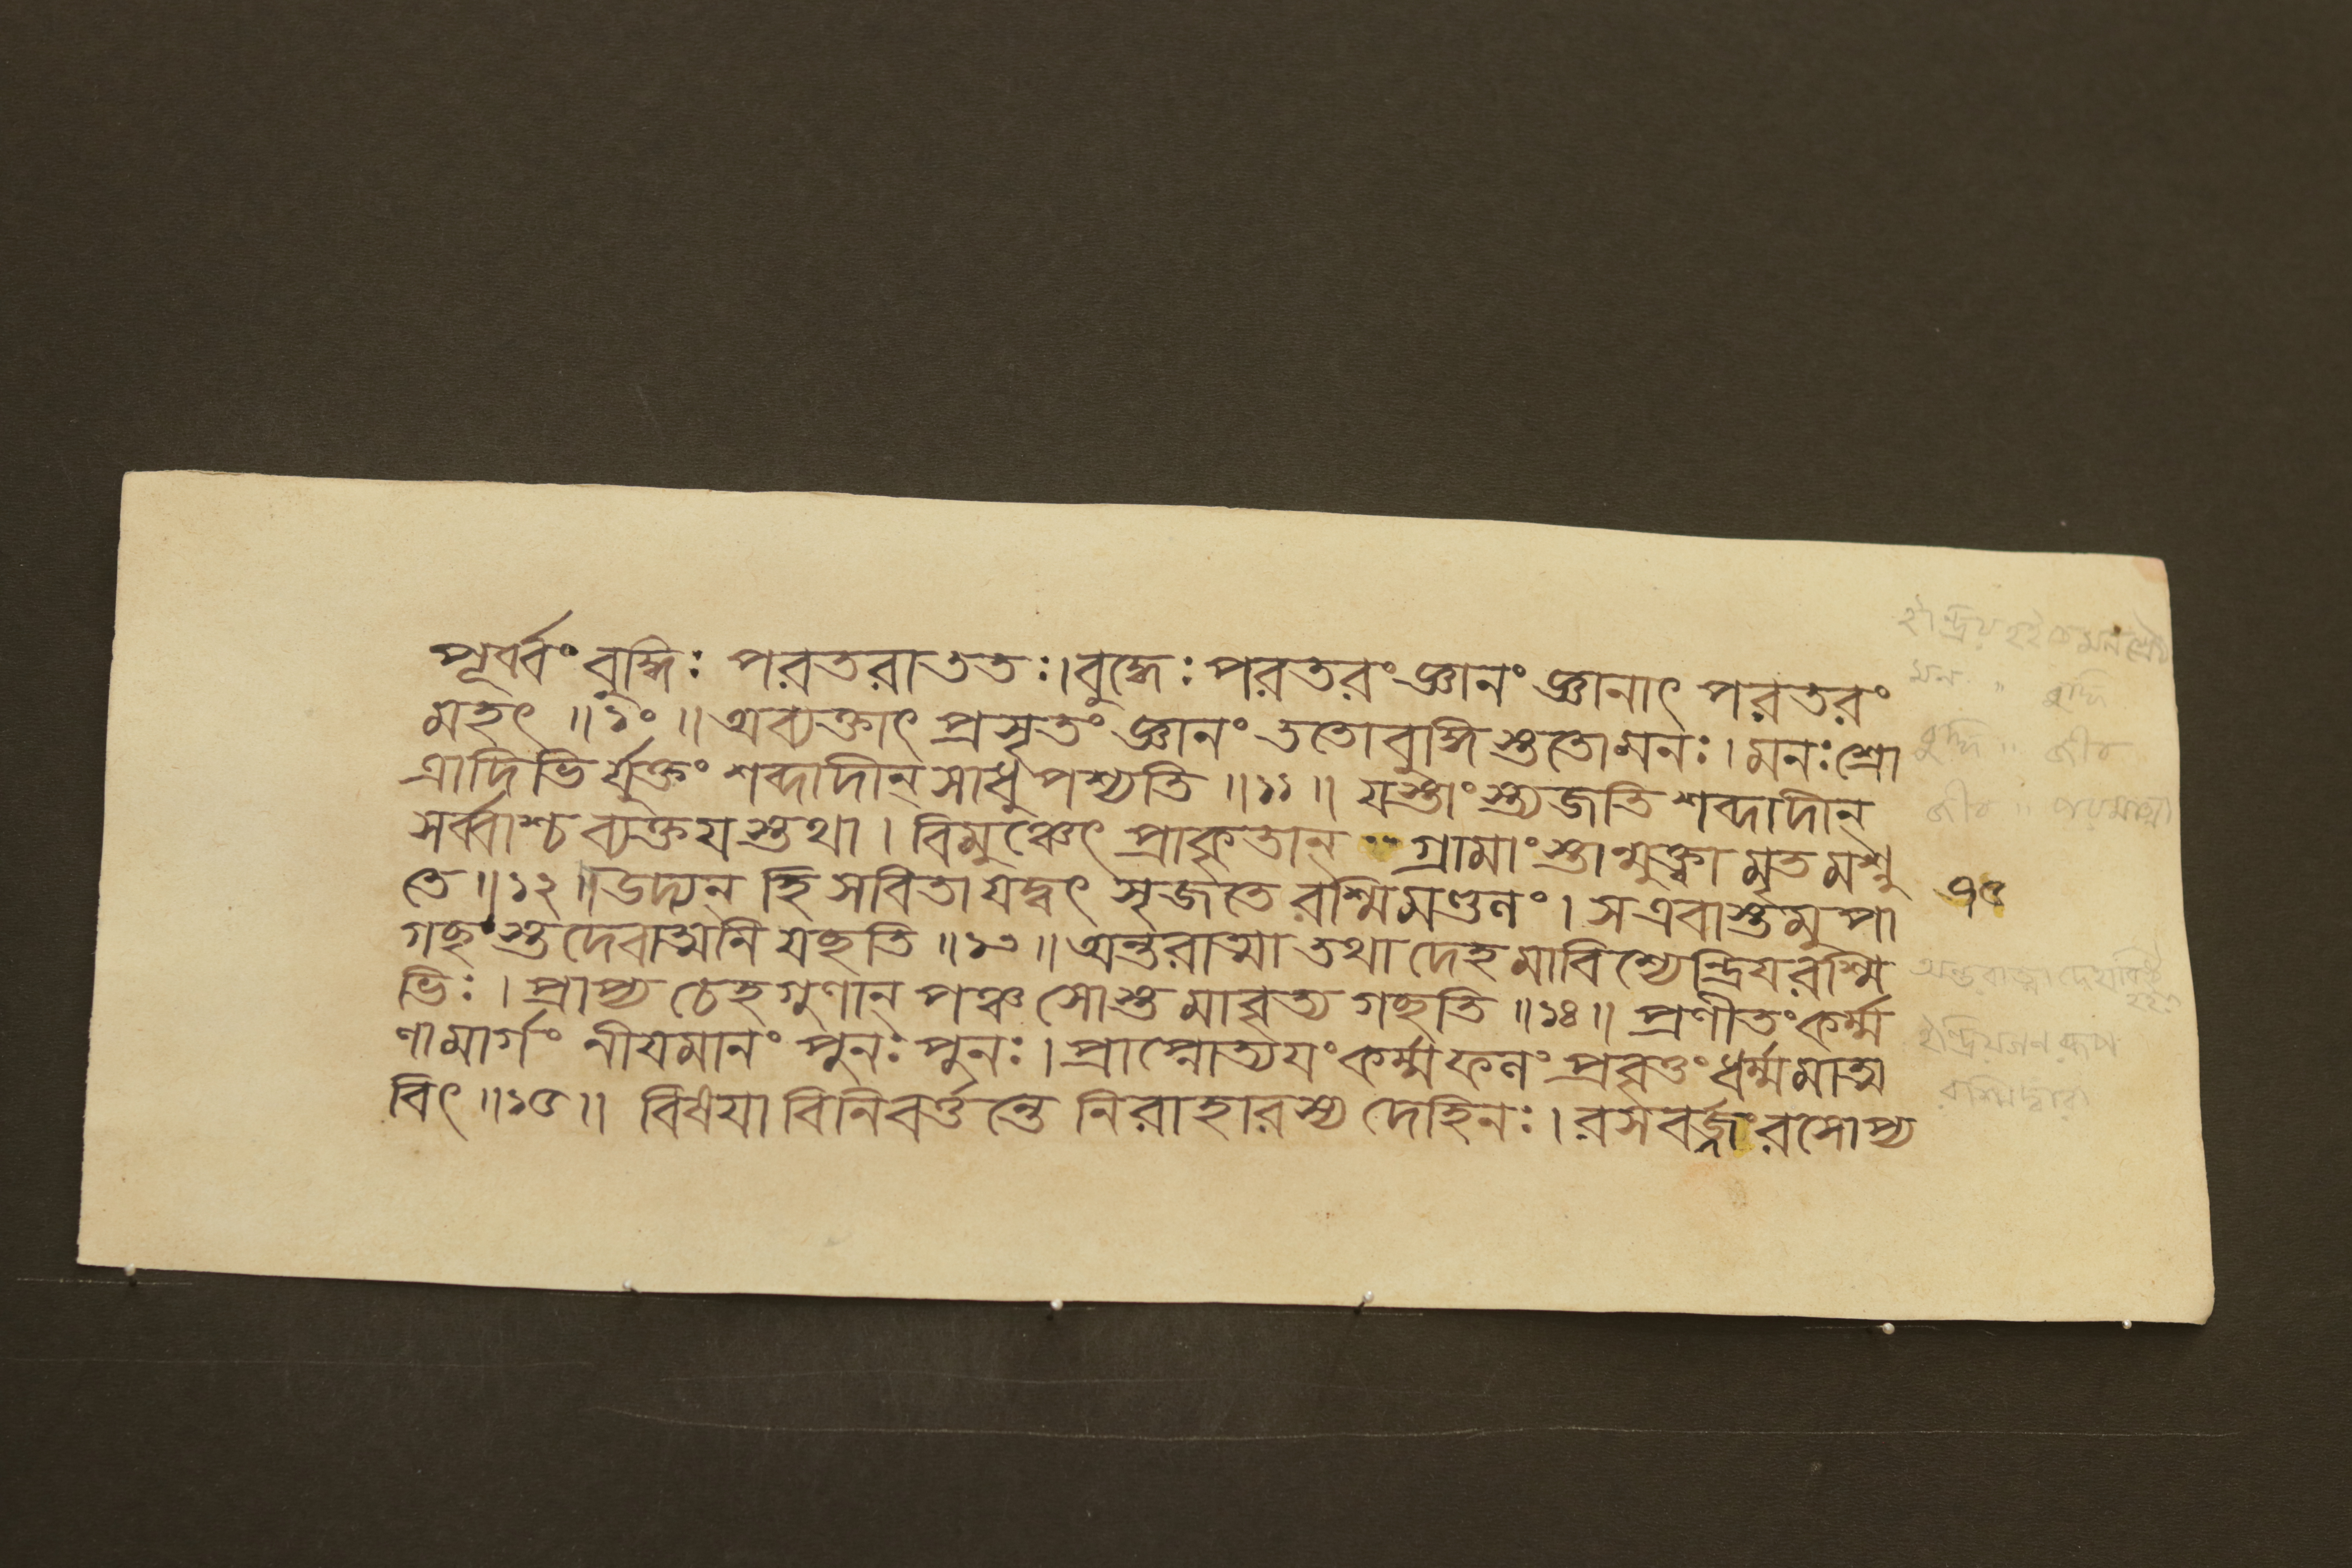 পূর্ব্বং বুদ্ধিঃ পরতরা ততঃ। বুদ্ধেঃ পরতরং জ্ঞানং জ্ঞানাৎ পরতরং
মহৎ ॥১০॥ অব্যক্তাৎ প্রসৃতং জ্ঞানং ততো বুদ্ধিস্ততো মনঃ। মনঃ শ্রো
ত্রাদিভির্যুক্তং শব্দাদীন্ সাধু পশ্যতি ॥১১॥ যস্তাংস্ত্যজতি শব্দাদীন্
সর্ব্বাশ্চ ব্যক্তযস্তথা। বিমুঞ্চেৎ প্রাকৃতান্ গ্রামাংস্তান্মুক্ত্বামৃতমশ্নু
তে ॥১২॥ উদ্যন্ হি সবিতা যদ্বৎ সৃজতে রশ্মিমণ্ডলং। স এবাস্তমুপা
গচ্ছংস্তদেবাত্মনি যচ্ছতি ॥১৩॥ অন্তরাত্মা তথা দেহমাবিশ্যেন্দ্রিযরশ্মি
ভিঃ। প্রাপ্য চেহ গুণান্ পঞ্চ সোস্তমাবৃত্য গচ্ছতি ॥১৪॥ প্রণীতং কর্ম্ম
ণামার্গং নীযমানং পুনঃ পুনঃ। প্রাপ্নোত্যযং কর্ম্মফলং প্রবৃত্তং ধর্ম্মমাত্ম
বিৎ ॥১৫॥ বিষযা বিনিবর্ত্তন্তে নিরাহারস্য দেহিনঃ। রসবর্জ্জং রসোপ্য
৭৫
মন " বুদ্ধি
বুদ্ধি " জীব
জীব " পরমাত্মা
রশ্মিদ্বারা